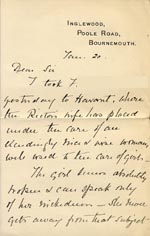 INGLEWOOD,
POOLE ROAD,
BOURNEMOUTH.
Jan. 20.
Dear Sir
I took F.
yesterday to Havant, where
the Rector's wife has placed
under the care of an
nice woman,
used to the care of girls.
The girl seems absolutely
broken & can speak only
of her wickedness — She never
gets away from that subject